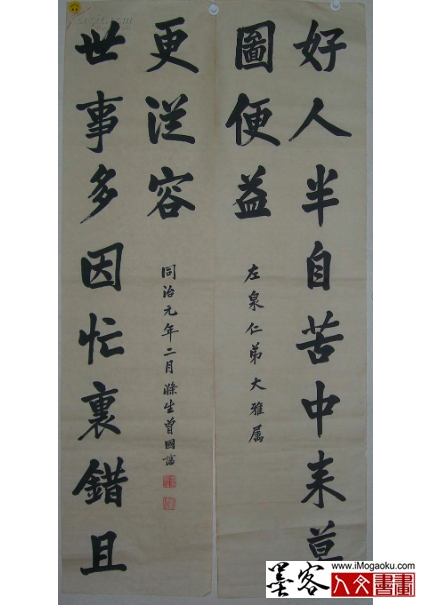 好人半自苦中来莫
圖便益
左泉仁弟大雅属
世事多因忙裏錯且
更從容
同治元年二月滌生曾國藩
墨客
www.iMogaoku.com
人文書畫